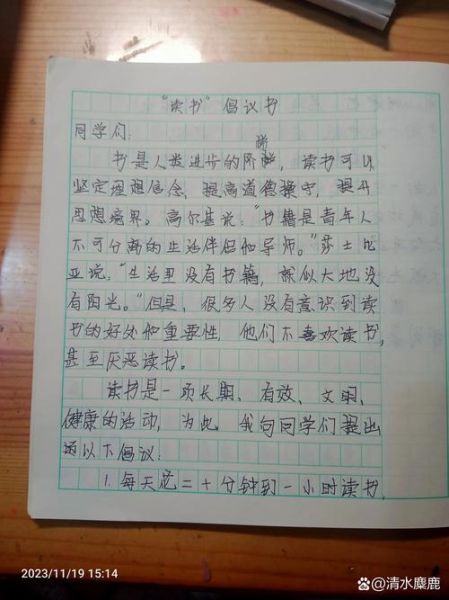 "读书"倡议书
同学们:
书是人类进步的阶梯，读书可以
坚定理想信念，提高道德操守，提升
思想境界。高尔基说："书籍是青年人
不可分离的生活伴侣和导师。"莎士比
亚说："生活里没有书籍，就似大地没
有阳光。"但是，很多人没有意识到读
书的好处和重要性，他们不喜欢读书，
甚至厌恶读书。
读书是一项长期、有效、文明、
健康的活动，为此，我向同学们提出
以下倡议：
1.每天花二十分钟到一小时读书，
2023/11/19 15:14
百度@清水麋鹿